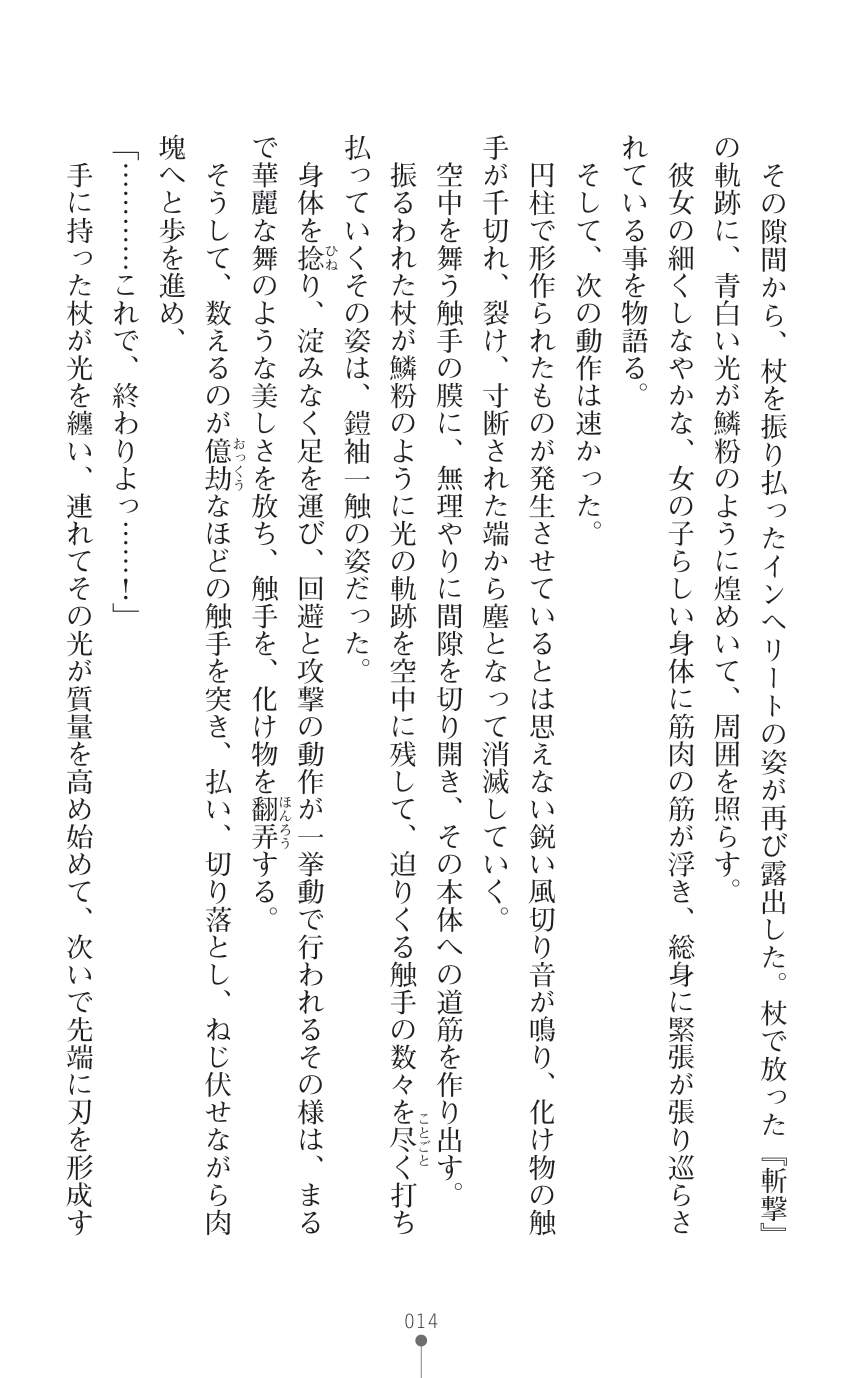 その隙間から、杖を振り払ったインヘリートの姿が再び露出した。杖で放った『斬撃』
の軌跡に、青白い光が鱗粉のように煌めいて、周囲を照らす。
彼女の細くしなやかな、女の子らしい身体に筋肉の筋が浮き、総身に緊張が張り巡らさ
れている事を物語る。
そして、次の動作は速かった。
円柱で形作られたものが発生させているとは思えない鋭い風切り音が鳴り、化け物の触
手が千切れ、裂け、寸断された端から塵となって消滅していく。
空中を舞う触手の膜に、無理やりに間隙を切り開き、その本体への道筋を作り出す。
振るわれた杖が鱗粉のように光の軌跡を空中に残して、迫りくる触手の数々を尽く打ち
払っていくその姿は、鎧袖一触の姿だった。
身体を捻り、淀みなく足を運び、回避と攻撃の動作が一挙動で行われるその様は、まる
で華麗な舞のような美しさを放ち、触手を、化け物を翻弄する。
そうして、数えるのが億劫なほどの触手を突き、払い、切り落とし、ねじ伏せながら肉
塊へと歩を進め、
「…………これで、終わりよっ……！」
手に持った杖が光を纏い、連れてその光が質量を高め始めて、次いで先端に刃を形成す
014